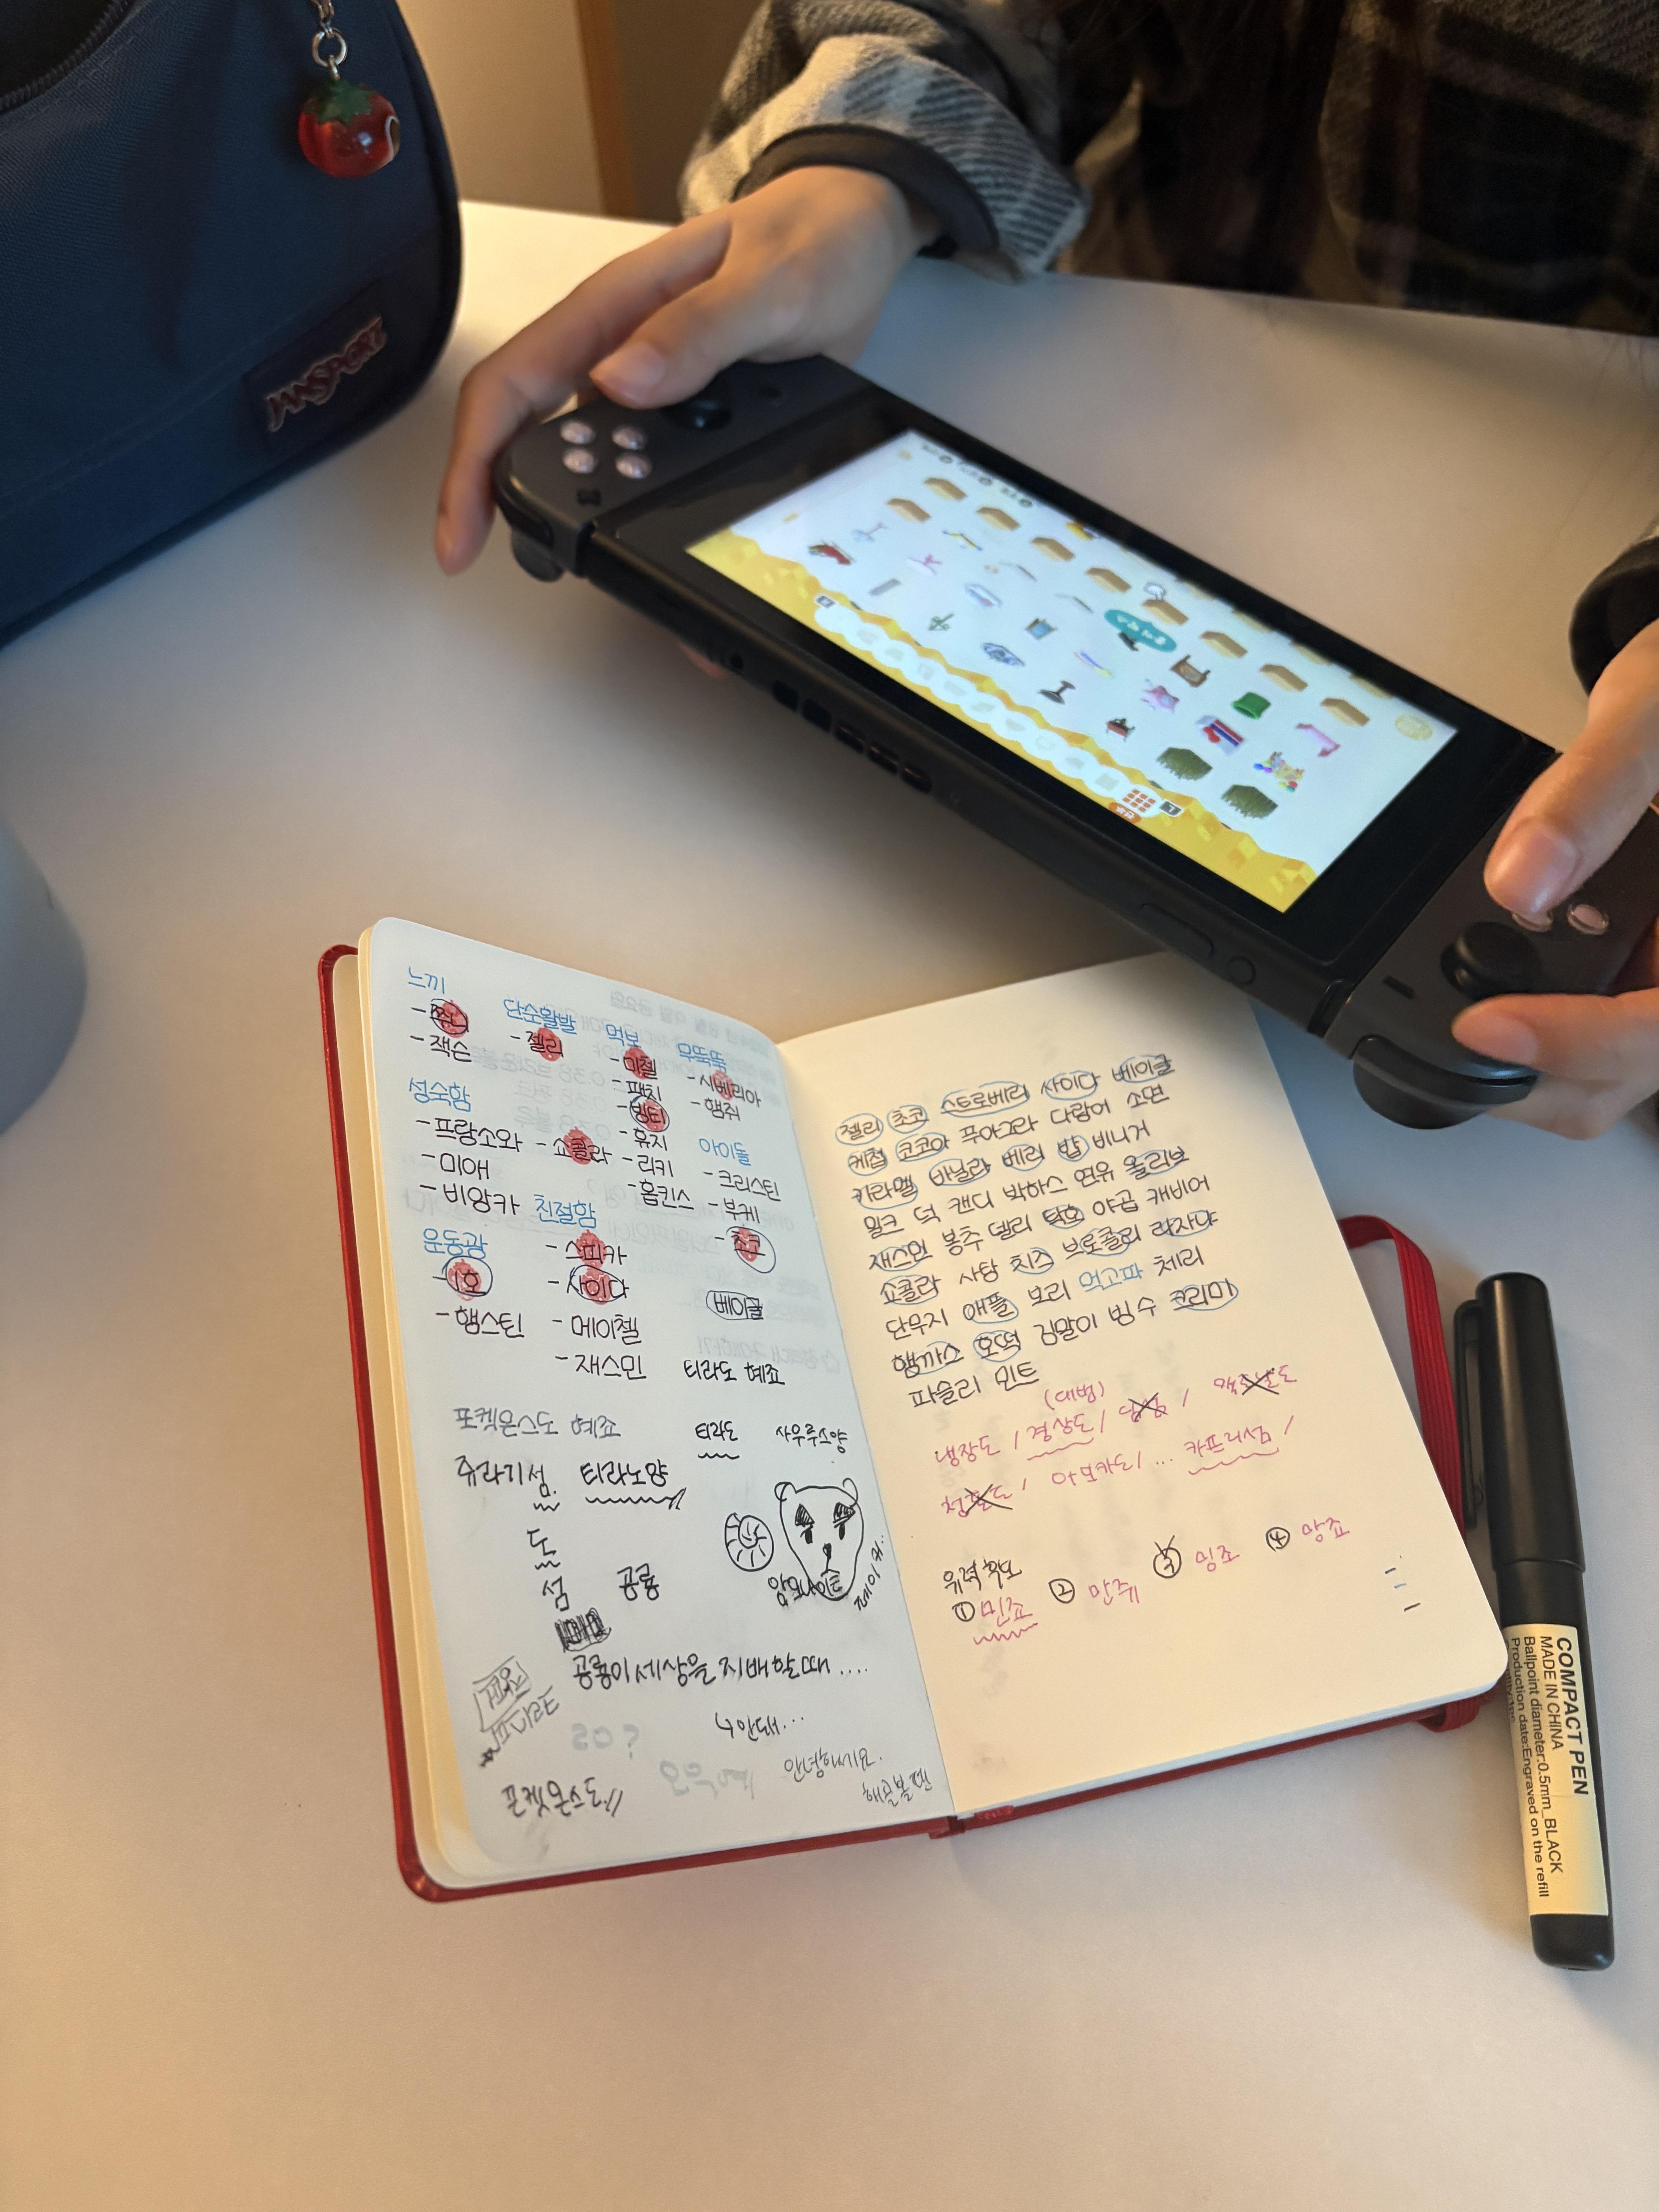 JANSPORT
느끼
- 쮸니
- 잭슨
성숙함
- 프랑소와
- 미애
- 비앙카
- 쇼콜라
운동광
- 1호
- 햄스틴
단순활발
- 젤리
친절함
- 스피카
- 사이다
- 메이첼
- 재스민
먹보
- 미첼
- 팻치
- 빙티
- 휴지
- 리키
- 홉킨스
무뚝뚝
- 시베리아
- 햄쥐
아이돌
- 크리스틴
- 부케
- 초코
베이글
티라도 혜죠
포켓몬스도 혜죠
티라도 사우루스양
쥬라기섬. 티라노양
도
섬 공룡
암모나이트
공룡이 세상을 지배할때 ....
↳ 안돼...
안녕하세요.
포켓몬스도//
젤리 초코 스트로베리 사이다 베이글
케첩 코코아 푸아그라 다람어 소면
카라멜 바닐라 베리 밥 비니거
밀크 덕 캔디 박하스 연유 올리브
재스민 봉추 델리 탁호 야곱 캐비어
쇼콜라 사탕 치즈 브로콜리 라자냐
단무지 애플 보리 먹고파 체리
햄까스 호떡 김말이 빙수 크리미
파슬리 민트
(대범)
냉장도 / 경상도 / /
/ 아보카도/ ... 카프리섬 /
유력 후보
① 민죠 ② 만쥬 ③ 밍죠 ④ 망죠
COMPACT PEN
MADE IN CHINA
Ballpoint diameter:0.5mm_BLACK
Production date:Engraved on the refill